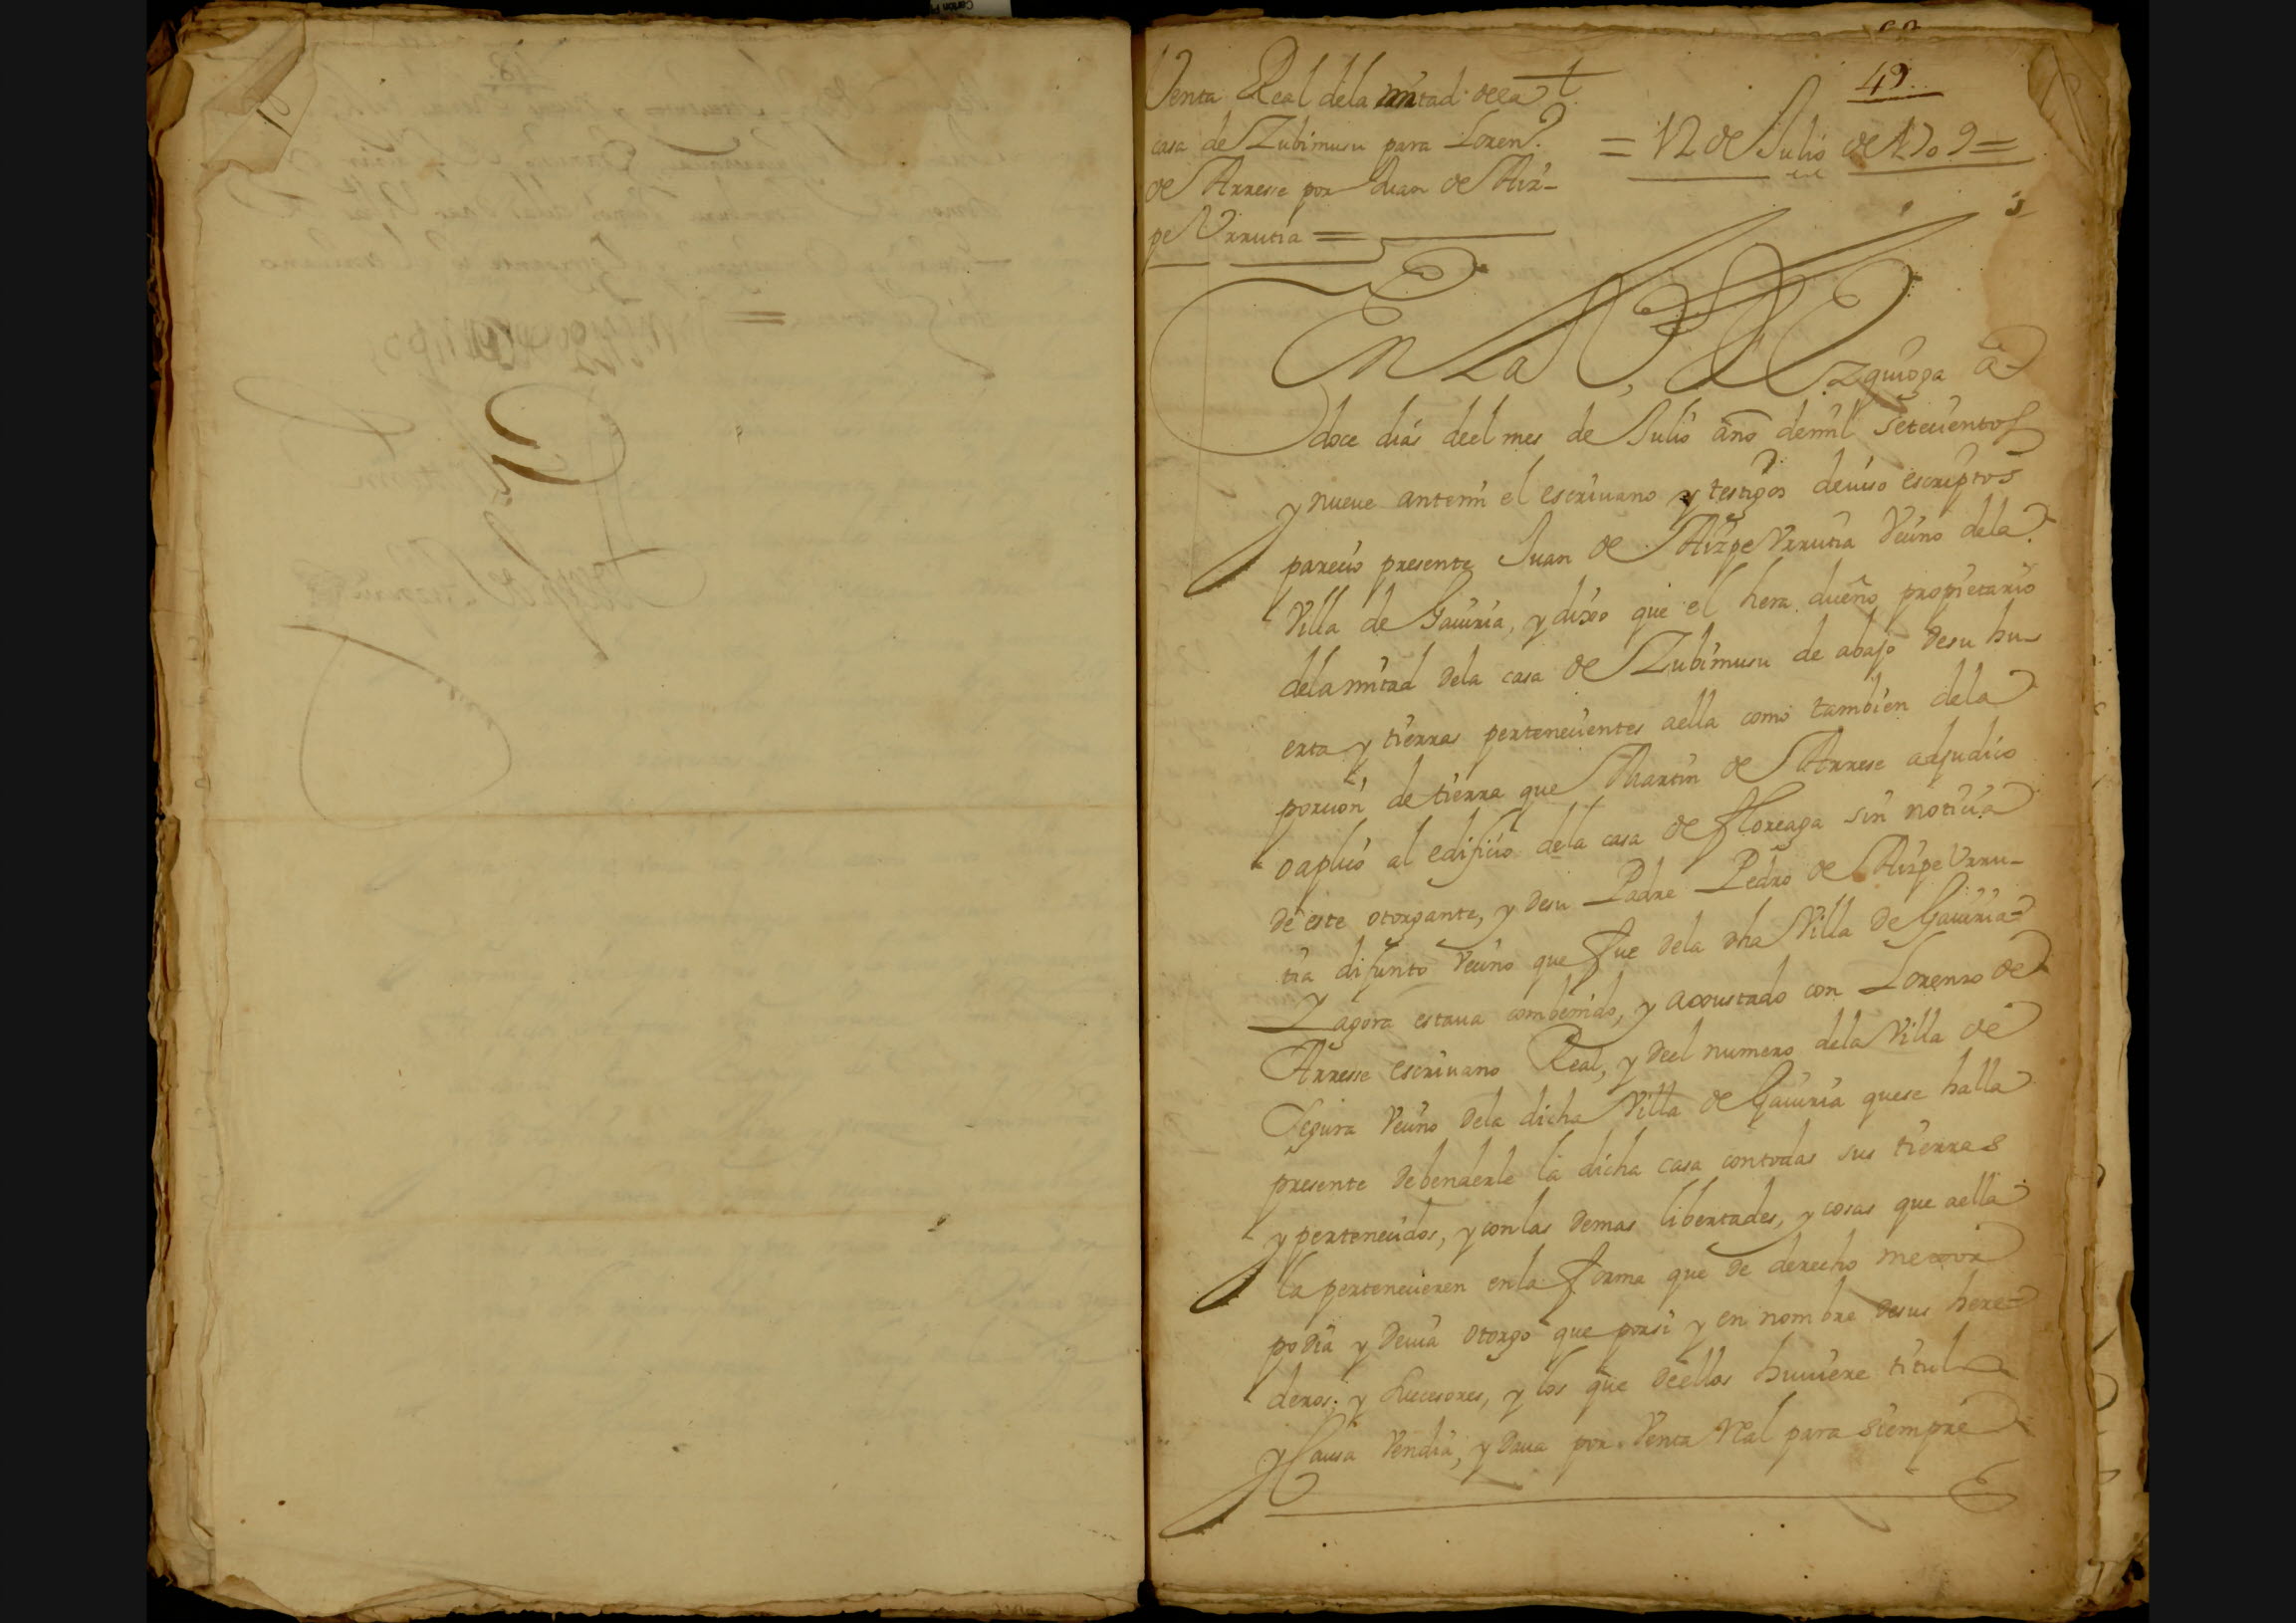 49.
Venta Real dela mitad dela
casa de Zubimusu para Loren.º
de Arresse por Juan de Aiz-
pe Vrrutia =
= 12 de Julio de 1709 =
En La Villa de Ezquioga â
doce dias deel mes de Julio año demil setecientos
y nueve antemi el escriuano y testigos deuiso escriptos
parecio presente Juan de Aizpe Vrrutia Vecino dela
Villa de Gauiria, y dixo que el hera dueño propietario
delamitad dela casa de Zubimusu de abajo desu hu-
erta y tierras pertenecientes aella como tambien dela
porcion de tierra que Martin de Arrese adjudico
o aplico al edificio dela casa de Floreaga sin noticia
de este otorgante, y desu Padre Pedro de Aizpe Vrru-
tia difunto Vecino que fue dela dha Villa de Gauiria=
Y agora estaua combenido, y acoustado con Lorenzo de
Arresse escriuano Real, y deel numero dela Villa de
Segura Vecino dela dicha Villa de Gauiria quese halla
presente debenderle la dicha casa contodas sus tierras
y pertenecidos, y con las demas libertades, y cosas que aella
la pertenecieren enla forma que de derecho mexor
podia y deuia otorgo que porsi y en nombre desus here=
deros, y Sucesores, y los que deellos huuiere titulo
y Causa Vendia, y daua por Venta Real para siempre